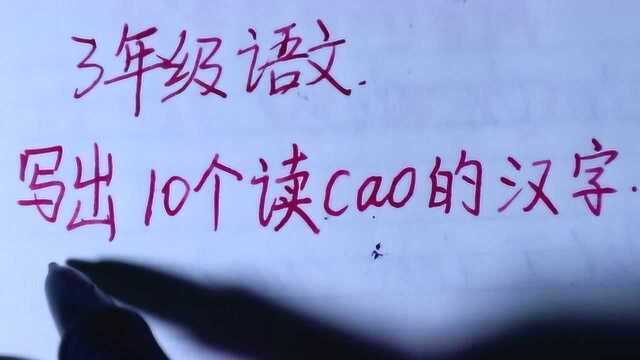 3年级语文.
写出10个读cao的汉字.